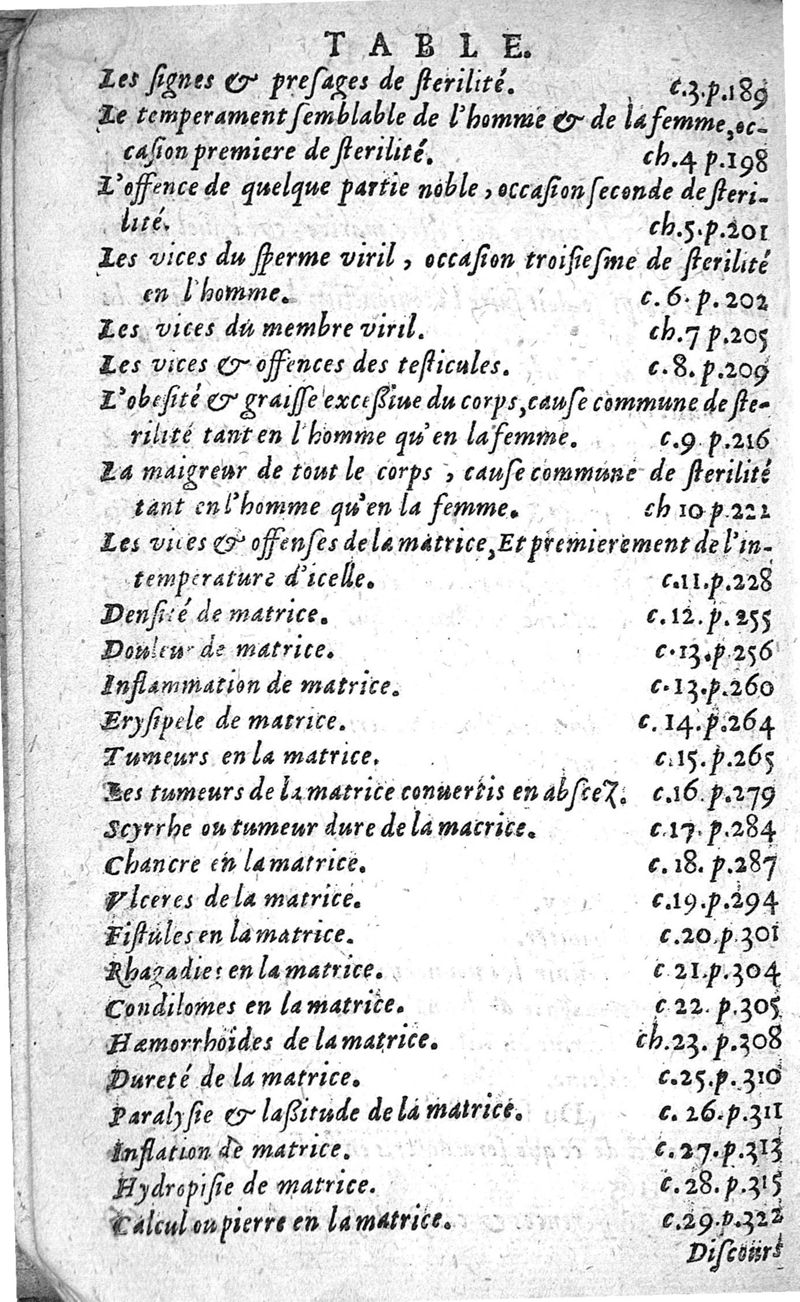 TABLE.
Les ſignes & preſages de ſterilité. c.3.p.189
Le temperament ſemblable de l'homme & de la femme, oc-
caſion premiere de ſterilité. ch.4 p.198
L'offence de quelque partie noble, occaſion ſeconde de ſteri-
lité. ch.5.p.201
Les vices du ſperme viril, occaſion troiſieſme de ſterilité
en l'homme. c.6.p.202
Les vices du membre viril. ch.7 p.205
Les vices & offences des teſticules. c.8.p.209
L'obeſité & graiſſe exceßiue du corps, cauſe commune de ſte-
rilité tant en l'homme qu'en la femme. c.9 p.216
La maigreur de tout le corps, cauſe commune de ſterilité
tant en l'homme qu'en la femme. ch 10 p.222
Les vices & offenſes de la matrice, Et premierement de l'in-
temperature d'icelle. c.11.p.228
Denſité de matrice. c.12.p.255
Douleur de matrice. c.13.p.256
Inflammation de matrice. c.13.p.260
Eryſipele de matrice. c.14.p.264
Tumeurs en la matrice. c.15.p.265
Les tumeurs de la matrice conuertis en abſcez. c.16.p.279
Scyrrhe ou tumeur dure de la macrice. c.17.p.284
Chancre en la matrice. c.18.p.287
Vlceres de la matrice. c.19.p.294
Fiſtules en la matrice. c.20.p.301
Rhagadies en la matrice. c 21.p.304
Condilomes en la matrice. c 22.p.305
Hæmorrhoïdes de la matrice. ch.23.p.308
Dureté de la matrice. c.25.p.310
Paralyſie & laßitude de la matrice. c.26.p.311
Inflation de matrice. c.27.p.313
Hydropiſie de matrice. c.28.p.315
Calcul ou pierre en la matrice. c.29.p.322
Diſcours